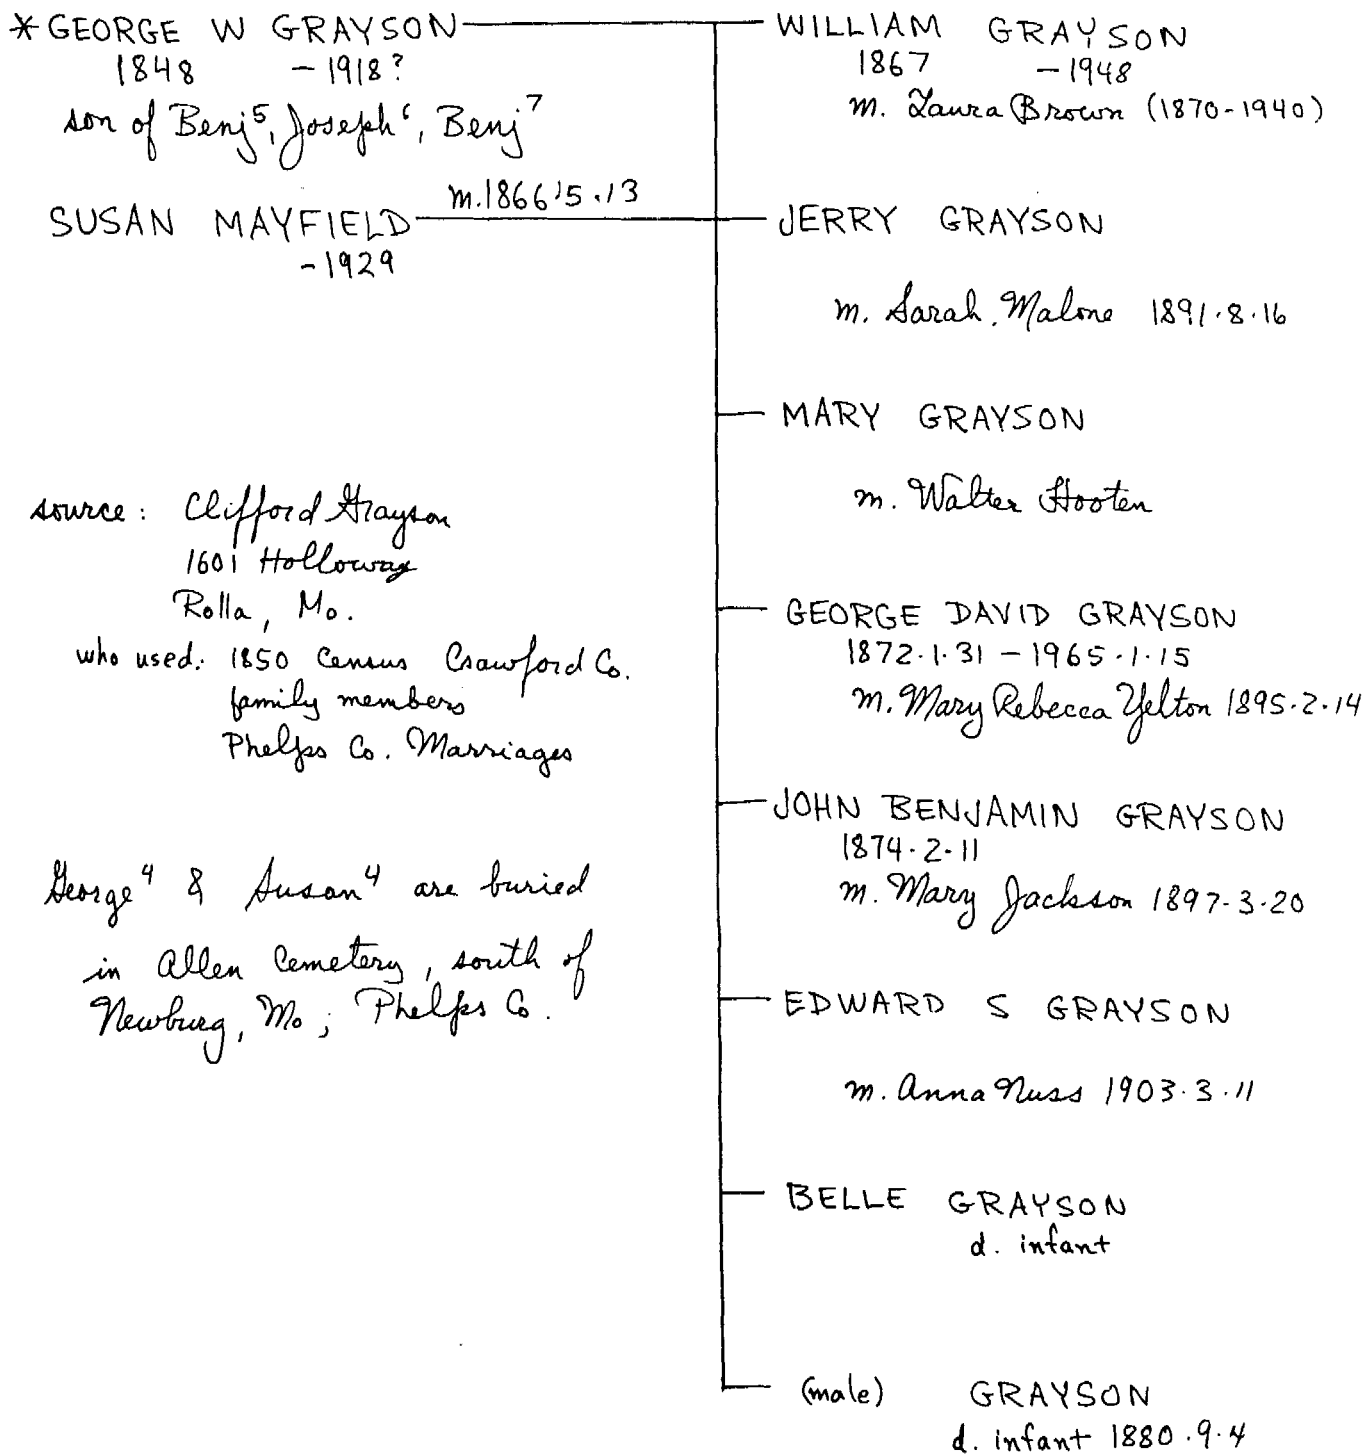 *GEORGE W GRAYSON
1848 - 1918?
son of Benj⁵, Joseph⁶, Benj⁷
m. 1866'5.13
SUSAN MAYFIELD
- 1929
source: Clifford Grayson
1601 Holloway
Rolla, Mo.
who used: 1850 Census Crawford Co.
family members
Phelps Co. Marriages
George⁴ & Susan⁴ are buried
in Allen Cemetery, south of
Newburg, Mo; Phelps Co.
WILLIAM GRAYSON
1867 - 1948
m. Laura Brown (1870-1940)
JERRY GRAYSON
m. Sarah Malone 1891.8.16
MARY GRAYSON
m. Walter Hooten
GEORGE DAVID GRAYSON
1872.1.31 - 1965.1.15
m. Mary Rebecca Yelton 1895.2.14
JOHN BENJAMIN GRAYSON
1874.2.11
m. Mary Jackson 1897.3.20
EDWARD S GRAYSON
m. Anna Nuss 1903.3.11
BELLE GRAYSON
d. infant
(male) GRAYSON
d. infant 1880.9.4